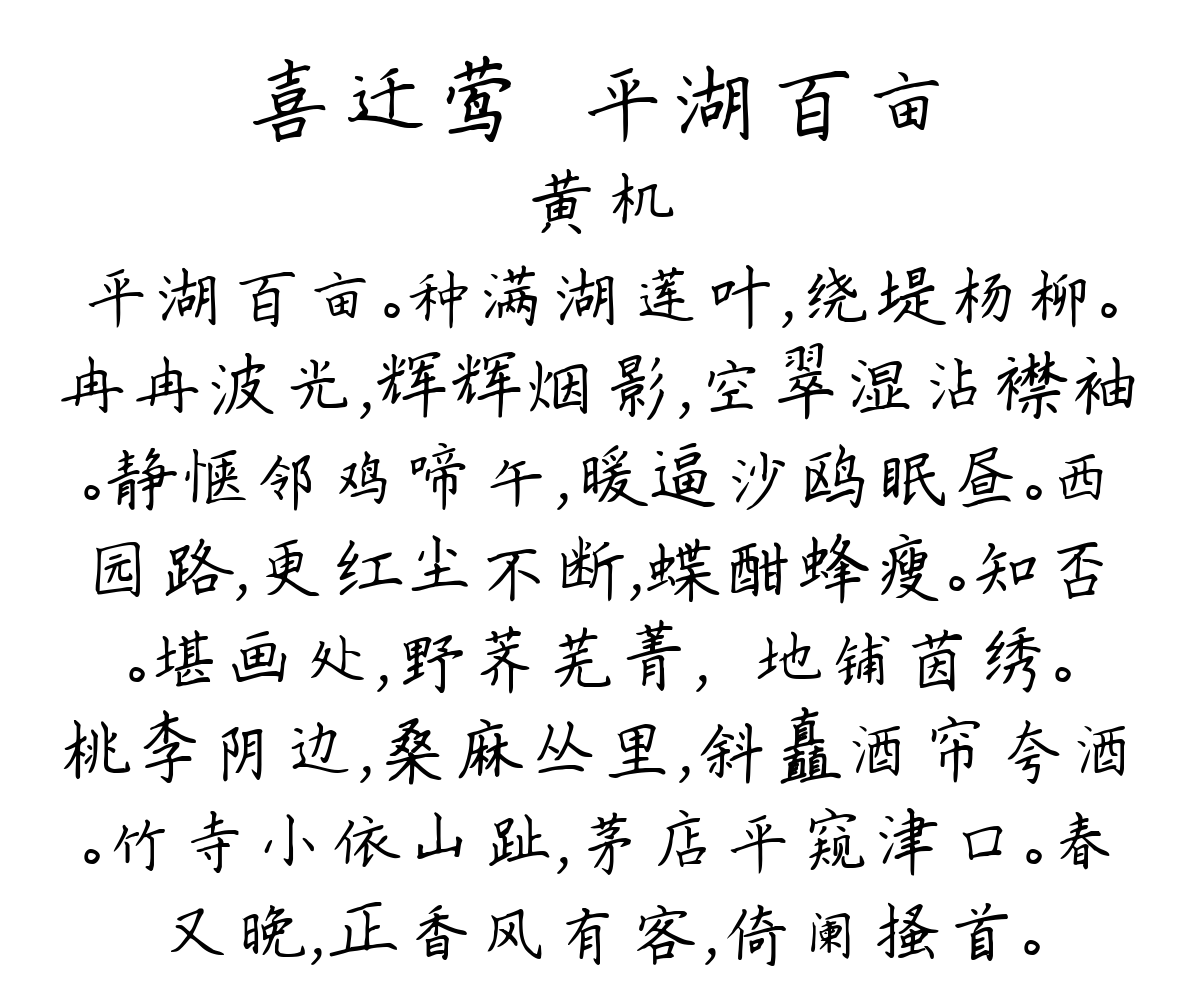 喜迁莺 平湖百亩
黄机
平湖百亩。种满湖莲叶,绕堤杨柳。
冉冉波光,辉辉烟影,空翠湿沾襟袖
。静惬邻鸡啼午,暖逼沙鸥眠昼。西
园路,更红尘不断,蝶酣蜂瘦。知否
。堪画处,野荠芜菁，地铺茵绣。
桃李阴边,桑麻丛里,斜矗酒帘夸酒
。竹寺小依山趾,茅店平窥津口。春
又晚,正香风有客,倚阑搔首。